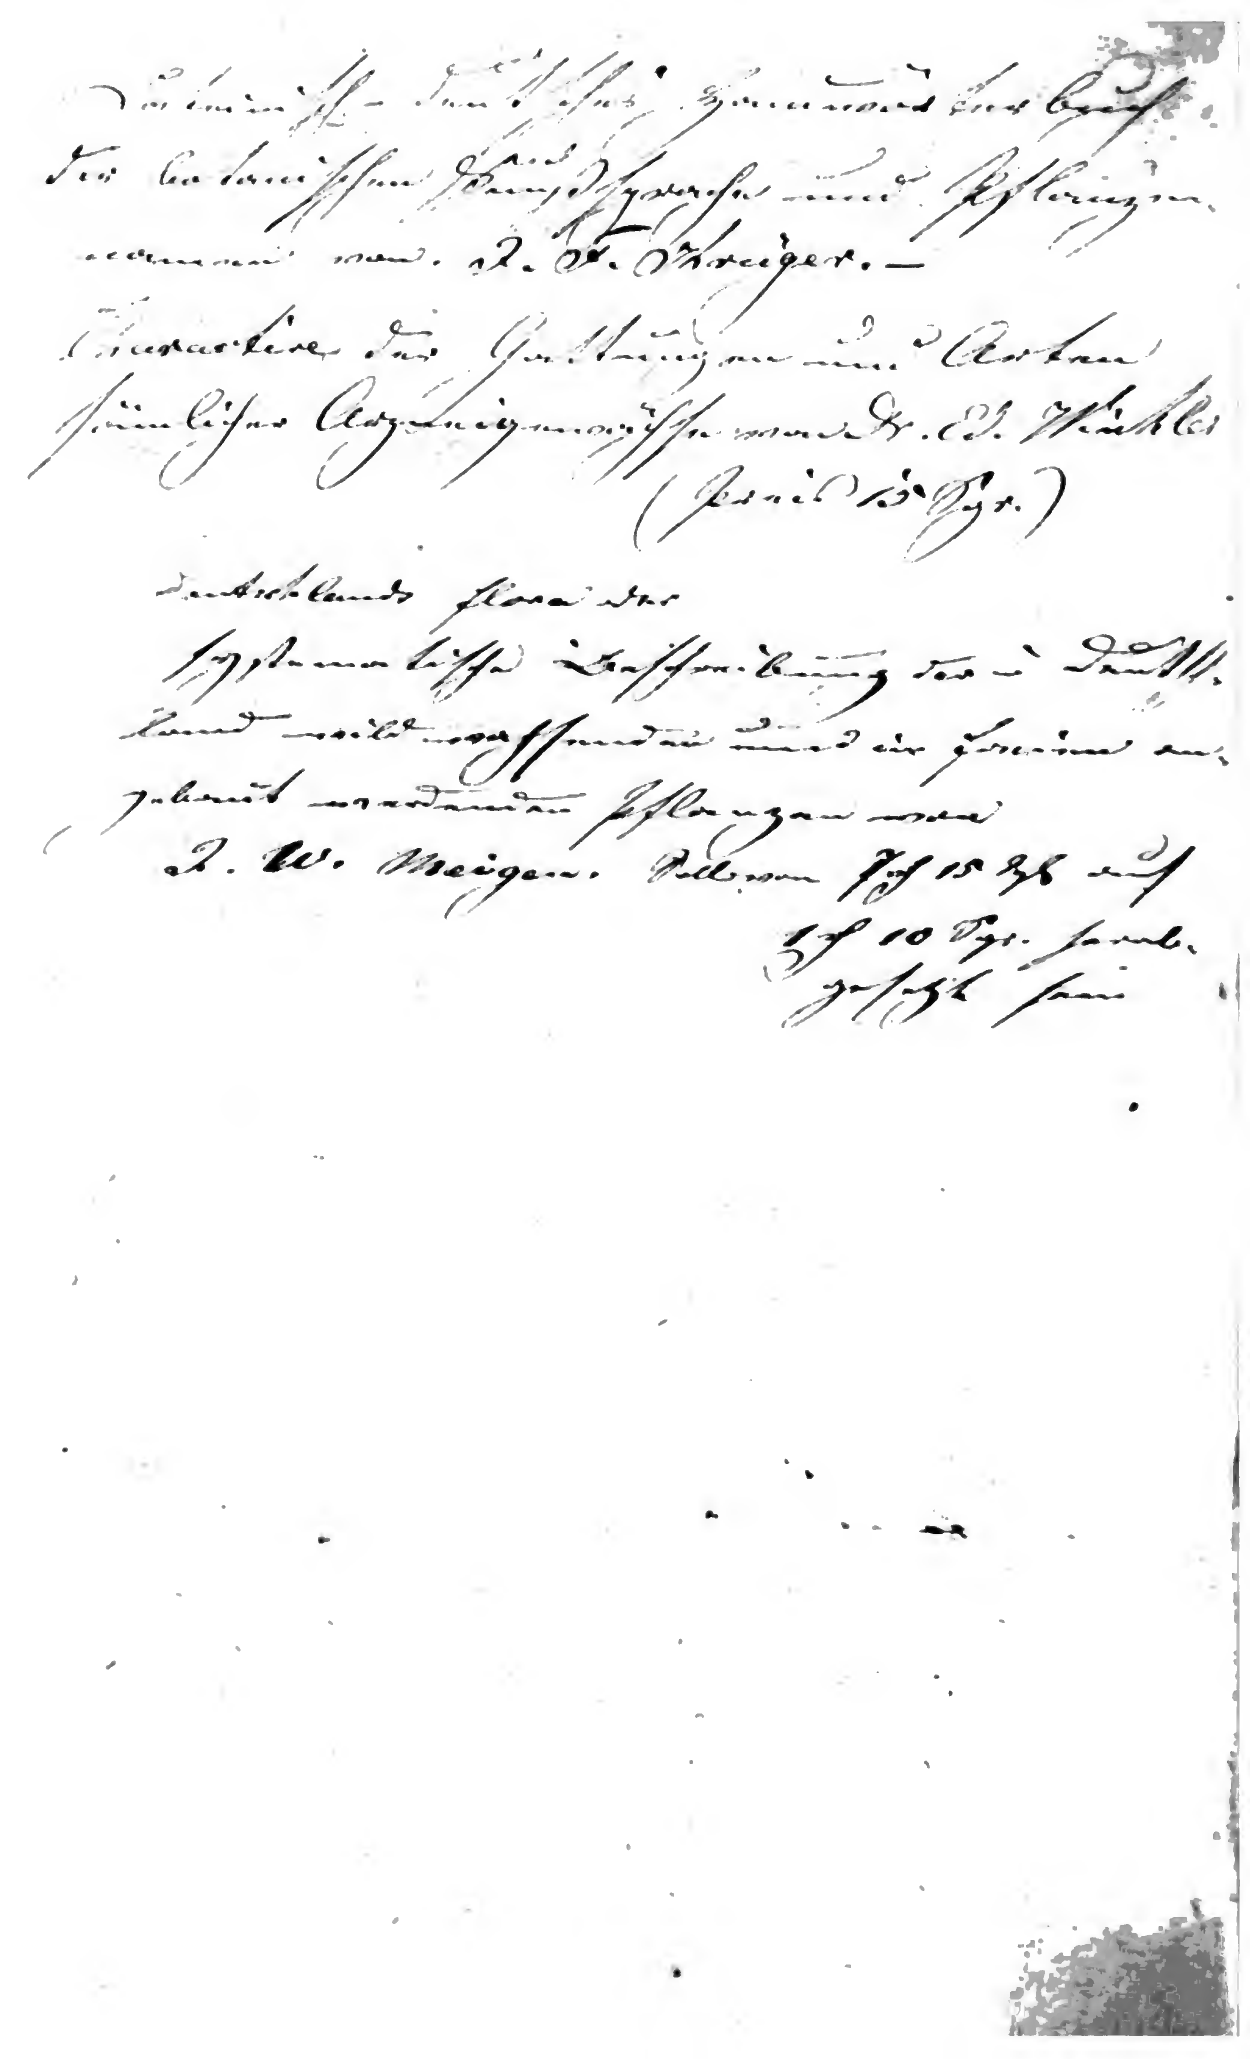 Lateinisch-deutsches Handwörterbuch
der botanischen Kunstsprache und Pflanzen-
namen von J. F. Krüger. —
Charactere der Gattungen und Arten
sämlicher Arzneigewächse von Dr. Ed. Winkler
(Preis 15 Sgr.)
Deutschlands flora oder
systematische Beschreibung der in Deutsch-
land wild wachsenden und im freien an-
gebaut werdenden Pflanzen von
J. W. Meigen. Soll von 7 15 auf
1 10 Sgr. herab-
gesetzt sein